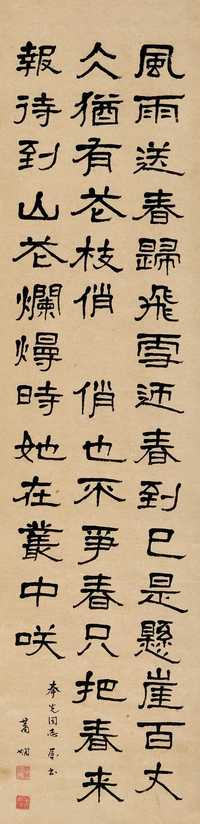 風雨送春歸飛雪迎春到已是懸崖百丈
仌猶有花枝俏 俏也不爭春只把春来
報待到山花爛熳時她在叢中咲
同志属書
蕭嫻